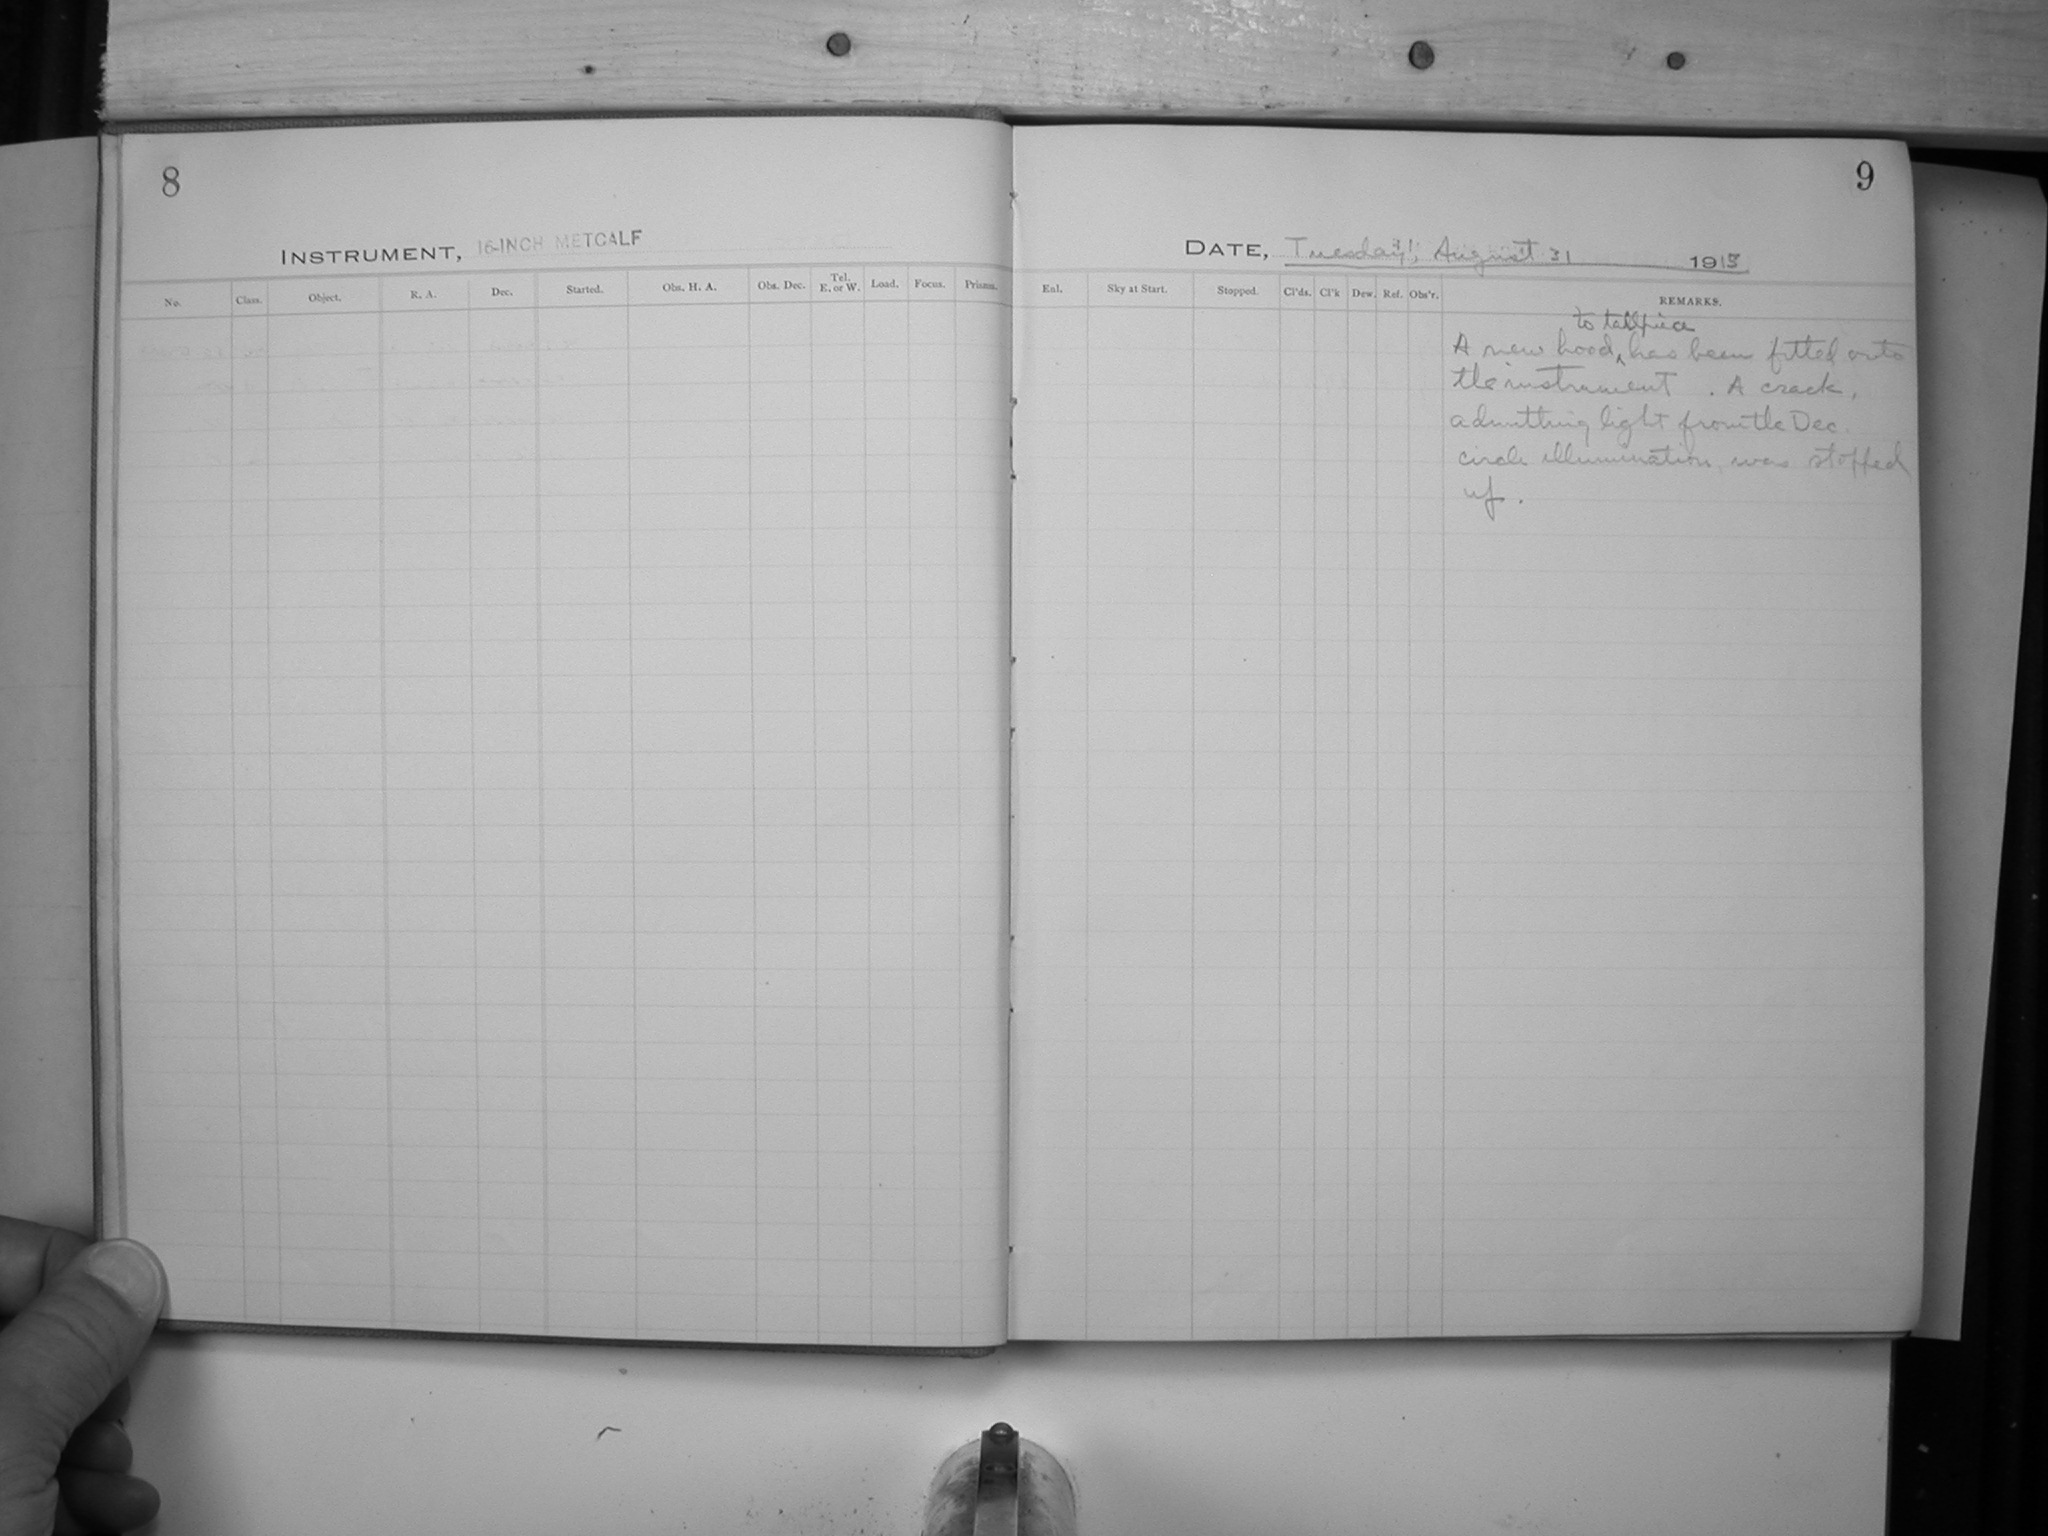 8
INSTRUMENT, 16-INCH METCALF
No. Class. Object. R. A. Dec. Started. Obs. H. A. Obs. Dec. Tel. E. or W. Load. Focus. Prisms.
9
DATE, Tuesday, August 31 1915
Enl. Sky at Start. Stopped. Cl'ds. Cl'k Dew. Ref. Obs'r. REMARKS.
to tailpiece
A new hood ^ has been fitted onto
the instrument . A crack,
admitting light from the Dec.
circle illumination, was stopped
up.